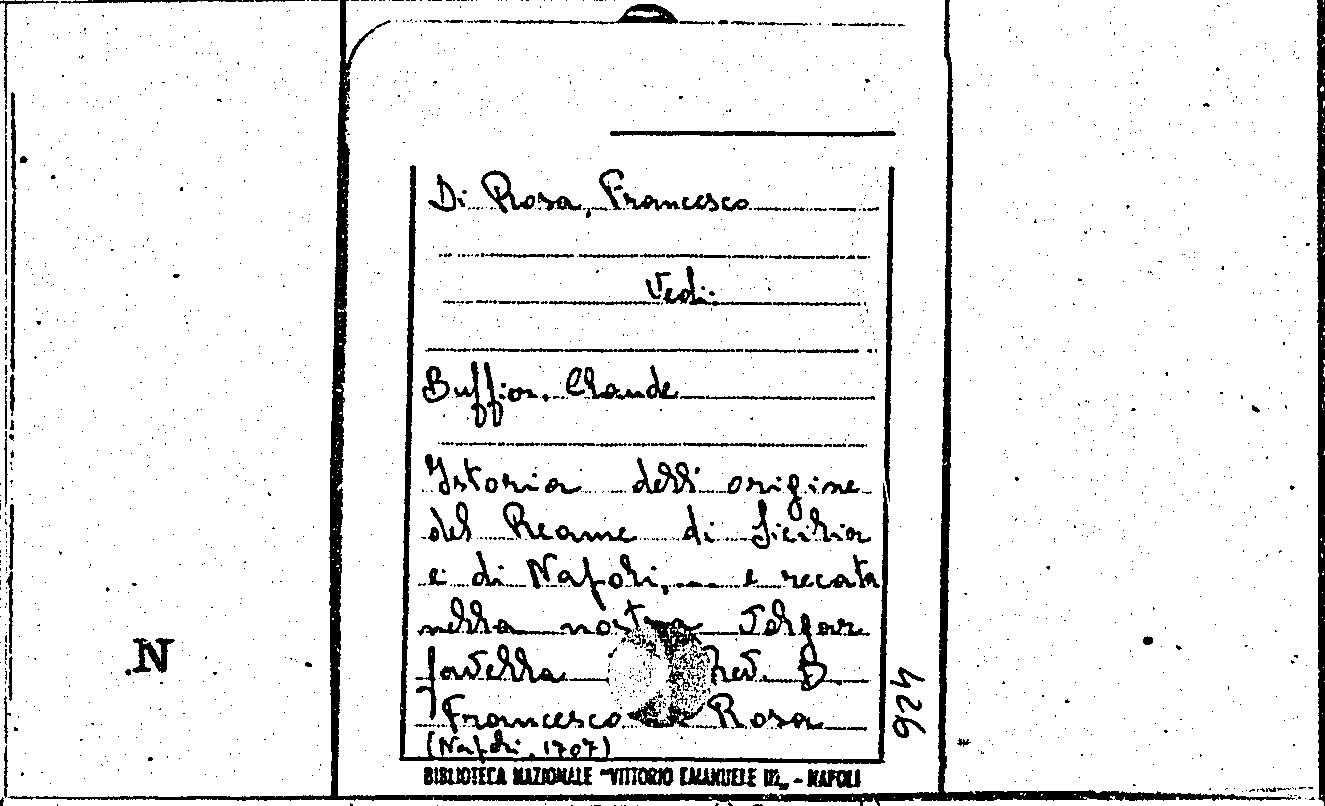 Di Rosa, Francesco
Vedi:
Buffier, Claude
Istoria dell'origine
del Reame di Sicilia
e di Napoli, ... e recata
nella nostra volgar
favella D.
Francesco Rosa
(Napoli, 1707)
BIBLIOTECA NAZIONALE "VITTORIO EMANUELE III" - NAPOLI
924
N